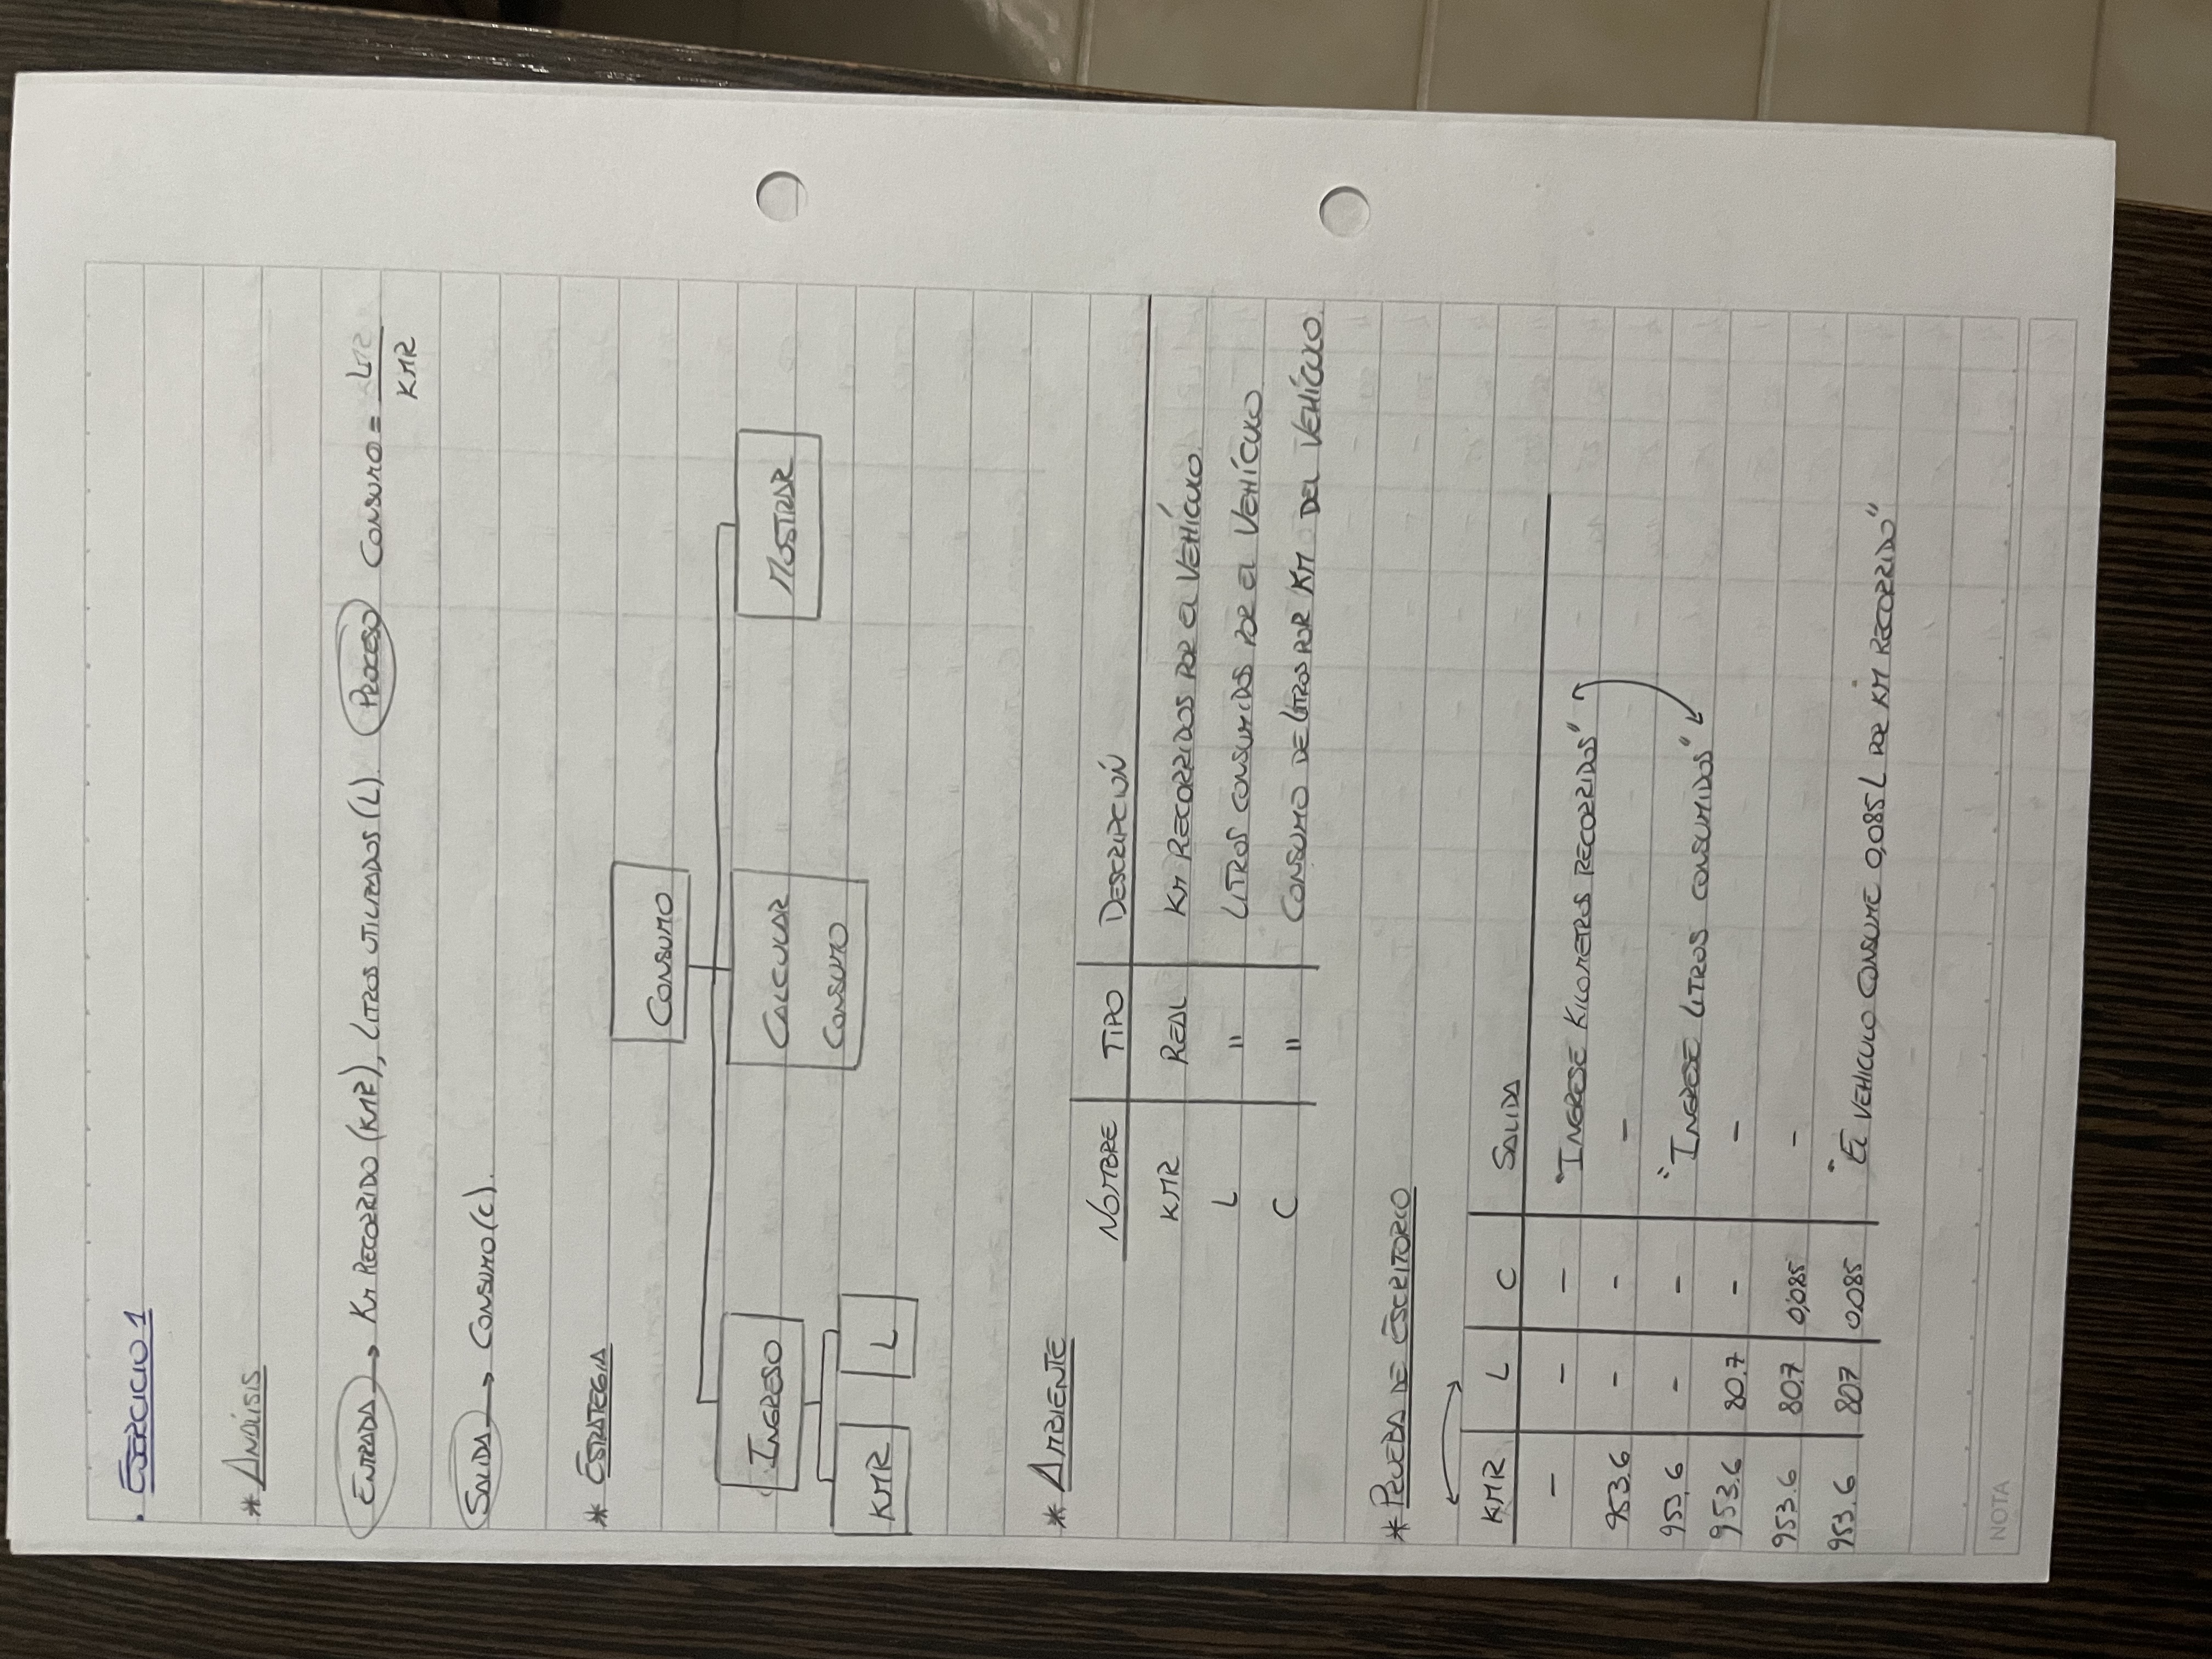 . EJERCICIO 1
* ANÁLISIS
ENTRADA → KM RECORRIDO (KMR), LITROS UTILIZADOS (L). PROCESO CONSUMO = L
KMR
SALIDA → CONSUMO (C).
* ESTRATEGIA
CONSUMO
INGRESO CALCULAR MOSTRAR
CONSUMO
KMR L
* AMBIENTE
NOMBRE TIPO DESCRIPCIÓN
KMR REAL KM RECORRIDOS POR EL VEHÍCULO
L " LITROS CONSUMIDOS POR EL VEHÍCULO
C " CONSUMO DE LITROS POR KM DEL VEHÍCULO.
* PRUEBA DE ESCRITORIO
KMR L C SALIDA
- - - "INGRESE KILOMETROS RECORRIDOS"
953.6 - - -
953.6 - - "INGRESE LITROS CONSUMIDOS"
953.6 80.7 - -
953.6 80.7 0,085 -
953.6 807 0,085 "EL VEHICULO CONSUME 0,085 L POR KM RECORRIDO"
NOTA